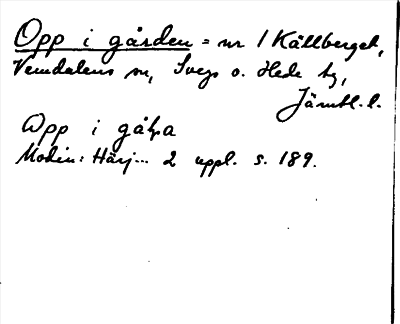 Opp i gården = nr 1 Källberget,
Vemdalens sn, Svegs o. Hede tg,
Jämtl. l.
Opp i gåḷa
Modin: Härj... 2 uppl. s. 189.